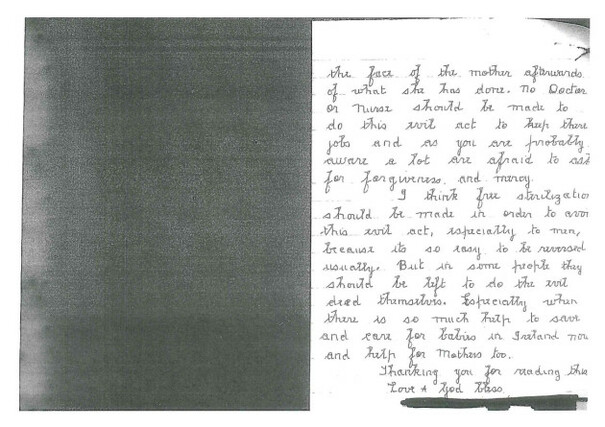 the face of the mother afterwards
of what she has done. No Doctor
or Nurse should be made to
do this evil act to keep there
jobs and as you are probably
aware a lot are afraid to ask
for forgiveness and mercy.
I think free sterilization
should be made in order to avoi
this evil act, especially to men,
because its so easy to be reversed
usually. But in some people they
should be left to do the evil
deed themselves. Especially when
there is so much help to save
and care for babies in Ireland now
and help for Mothers too.
Thanking you for reading this
Love + God bless